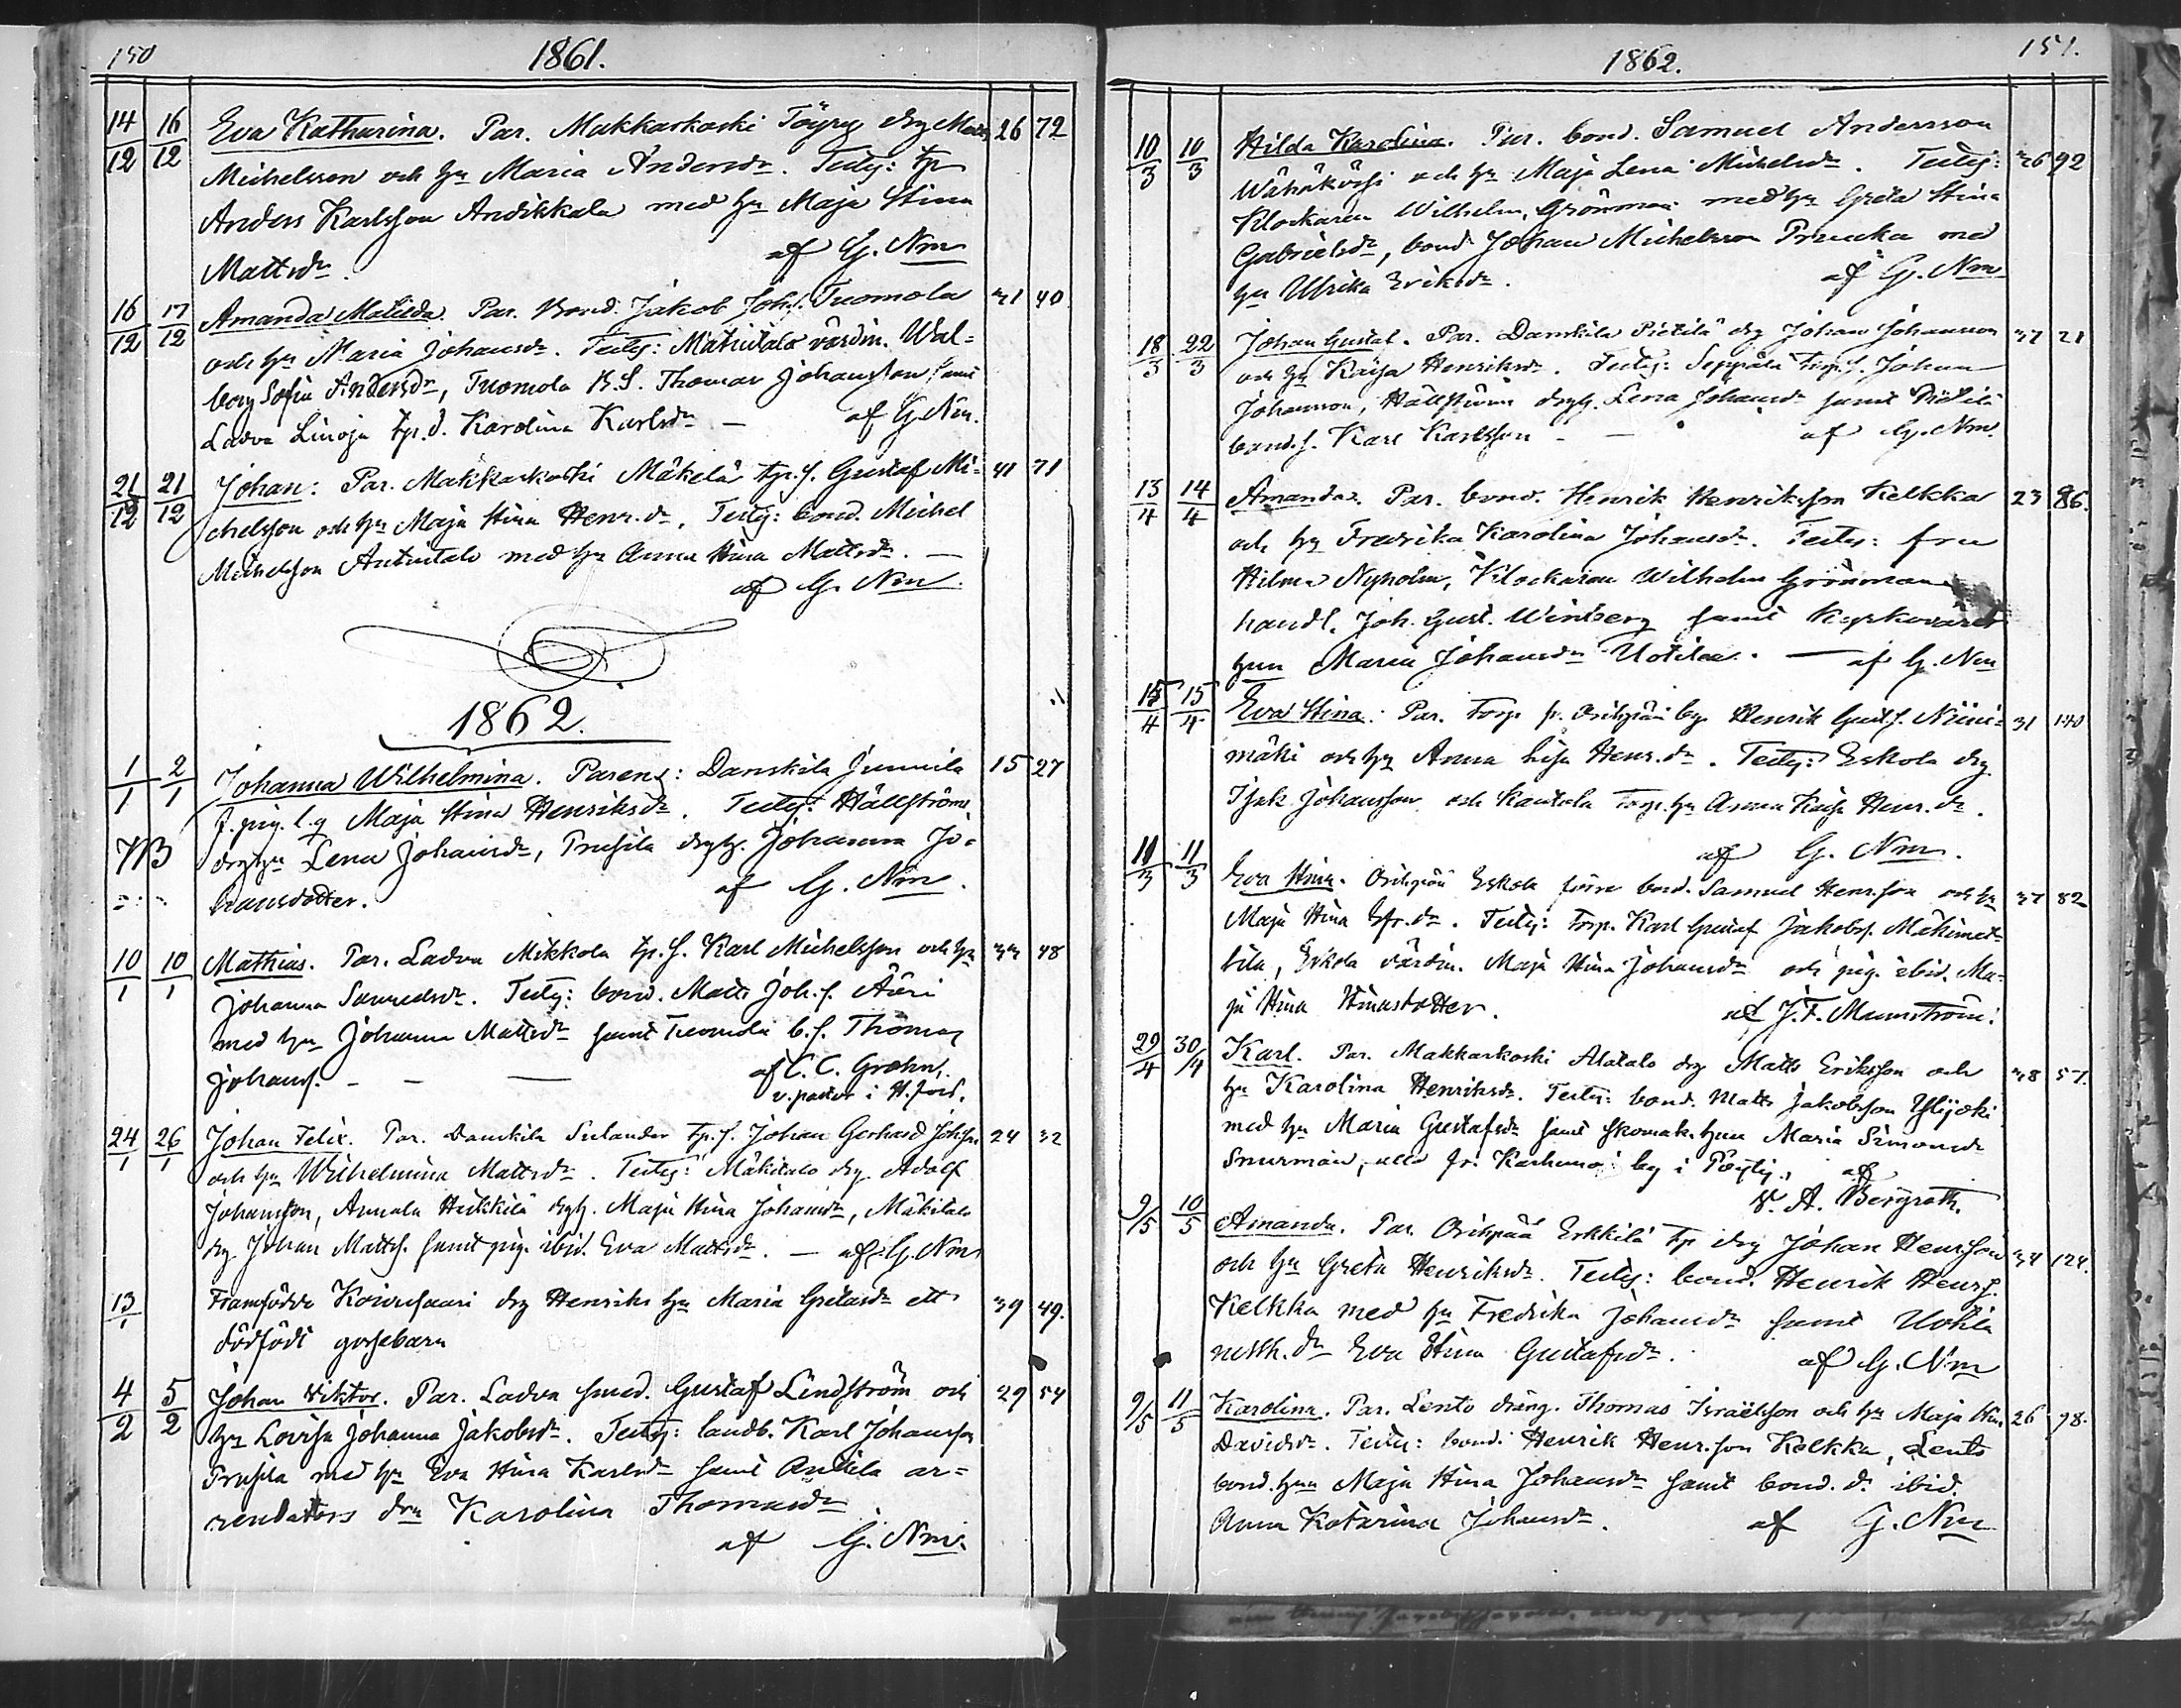 150
1861.
14/12 16/12 Eva Katharina. Par. Makkarkoski Töyry drg Matts 26 72
Michelsson och hu Maria Andersdr. Testes: tp
Anders Karlsson Andikkala med hu Maja Stina
Mattsdr. af G. Nm
16/12 17/12 Amanda Matilda. Par. Bond. Jakob Joh.s. Tuomola 31 40
och hu Maria Johansdr. Testes: Matintalo värdin. Wal=
borg Sofia Andersdr, Tuomola B.S. Thomas Johansson samt
Ladva Linoja tp.d. Karolina Karlsdr — af G. Nm.
21/12 21/12 Johan: Par. Makkarkoski Mäkelä tp.s. Gustaf Mi= 41 71
chelsson och hu Maja Stina Henr.dr. Testes: bond. Michel
Michelsson Antintalo med hu Anna Stina Mattsdr. —
af G. Nm.
1862.
1/1 2/1 Johanna Wilhelmina. Parens: Danskila Junnila 15 27
f. pig. l.q Maja Stina Henriksdr. Testes: Hällströms
NB drghu Lena Johansdr, Prusila drgh. Johanna Jo=
hansdotter. af G. Nm.
10/1 10/1 Mathias. Par. Ladva Mikkola tp.s. Karl Michelsson och hu 33 48
Johanna Samuelsdr. Testes: bond. Matts Joh.s. Ääri
med hu Johanna Mattsdr samt Tuomola b.s. Thomas
Johanss. — — — af C. C. Grohn,
v. pastor i H.ford.
24/1 26/1 Johan Felix. Par. Danskila Sulander tp.s. Johan Gerhard Johsson 24 32
och hu Wilhelmina Mattsdr. Testes: Mäkitalo drg. Adolf
Johansson, Annala Heikkilä drgh. Maja Stina Johansdr, Mäkitalo
drg. Johan Matts. samt pig. ibid. Eva Mattsdr. — af G. Nm
13/1 Framfödde Koivusaari drg Henriks hu Maria Gretasdr ett 39 49.
dödfödt gossebarn
4/2 5/2 Johan Viktor. Par. Ladva smed. Gustaf Lindström och 29 54
hu Lovisa Johanna Jakobsdr. Testes: landb. Karl Johansson
Prusila med hu Eva Stina Karlsdr samt Anttila ar=
rendators drn Karolina Thomasdr
af G. Nm.
1862.
151.
10/3 10/3 Hilda Karolina. Par. bond. Samuel Andersson
Wähäkörsi och hu Maja Lena Michelsdr. Testes: 36 92
Klockaren Wilhelm Grönman med hu Greta Stina
Gabrielsdr, bond. Johan Michelsson Prunka med
hu Ulrika Eriksdr. af G. Nm
18/3 22/3 Johan Gustaf. Par. Danskila Pietilä drg Johan Johansson 37 21
och hu Kaisa Henriksdr. Testes: Seppälä torp.s. Johan
Johansson, Hällström drgh. Lena Johansdr samt Pietilä
bond.s. Karl Karlsson — — af G. Nm.
13/4 14/4 Amanda. Par. bond. Henrik Henriksson Kelkka 23 86.
och hu Fredrika Karolina Johansdr. Testes: fru
Hilma Nyholm, Klockaren Wilhelm Grönman
handl. Joh. Gust. Winberg samt Kyrkovärds
hun Maria Johansdr Uotila. — af G. Nm
15/4 15/4 Eva Stina. Par. Torp. fr. Oripää by Henrik Gust.s. Niini= 31 140
mäki och hu Anna Lisa Henr.dr. Testes: Eskola drg
Isak Johansson och Kautola Torp.hu Anna Kaisa Henr.dr.
af G. Nm.
11/3 11/3 Eva Stina. Oripää Eskola förre bond. Samuel Henrsson och hu 37 82
Maja Stina Efr.dr. Testes: Torp. Karl Gustaf Jakobs. Mäkimat=
tila, Eskola värdin. Maja Stina Johansdr och pig. ibid. Ma=
ja Stina Stinasdotter. af J. F. Munström.
29/4 30/4 Karl. Par. Makkarkoski Alatalo drg Matts Eriksson och 38 57.
hu Karolina Henriksdr. Testes: bond. Matts Jakobsson Ylijoki
med hu Maria Gustafsdr samt skomak. hun Maria Simonsdr
Snurman, alla fr. Karhunoja by i Pöytis, af
V. A. Bergroth.
9/5 10/5 Amanda. Par. Oripää Erkkilä tp drg Johan Henrsson 34 124.
och hu Greta Henriksdr. Testes: bond. Henrik Henrs.
Kelkka med hu Fredrika Johansdr samt Uotila
nsth. dr Eva Stina Gustafsdr. af G. Nm
9/5 11/5 Karolina. Par. Lento dräng. Thomas Israelsson och hu Maja Stina 26 78.
Davidsdr. Testes: bond. Henrik Henr.son Kelkka, Lento
bond. hun Maja Stina Johansdr samt bond. d. ibid.
Anna Katarina Johansdr. af G. Nm